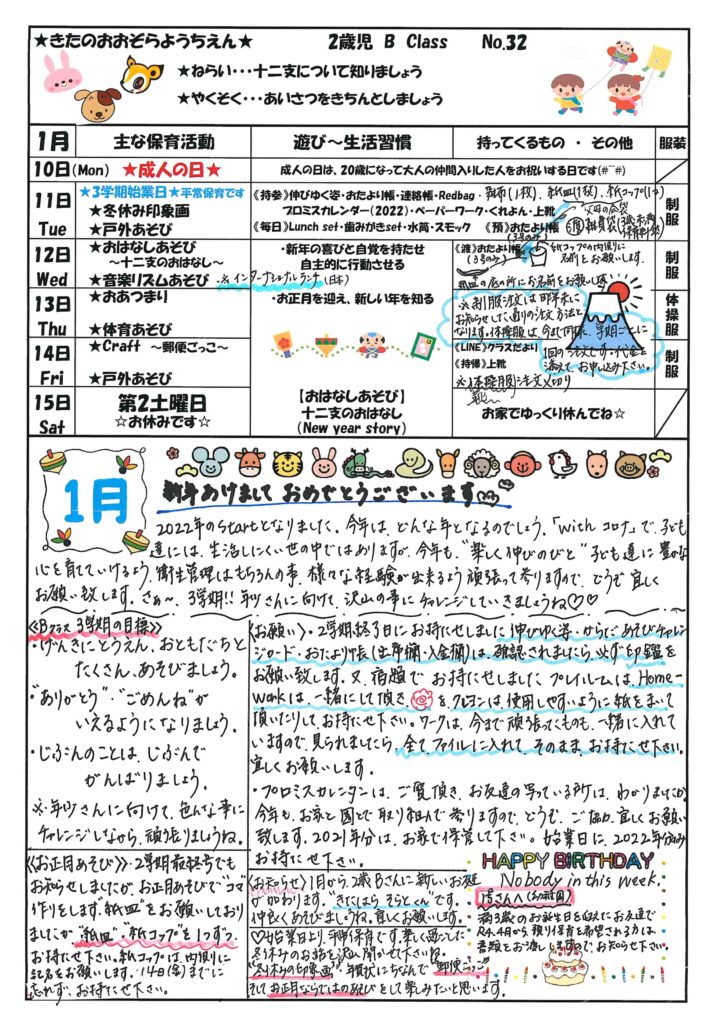 ★きたのおおぞらようちえん★ 2歳児 B Class No.32
★ねらい・・・十二支について知りましょう
★やくそく・・・あいさつをきちんとしましょう
1月 主な保育活動 遊び～生活習慣 持ってくるもの ・ その他 服装
10日(Mon) ★成人の日★ 成人の日は、20歳になって大人の仲間入りした人をお祝いする日です(#^^#)
11日 Tue
★3学期始業日★平常保育です
★冬休み印象画
★戸外あそび
《持参》伸びゆく姿・おたより帳・連絡帳・Redbag・雑布(1枚)、紙皿(1枚)、紙コップ(1つ)
プロミスカレンダー(2022)・ペーパーワーク・くれよん・上靴
《毎日》Lunch set・歯みがきset・水筒・スモック 《預》おたより帳
(3号のみ)
制服
12日 Wed
★おはなしあそび
～十二支のおはなし～
★音楽リズムあそび ※インターナショナルランチ(日本)
・新年の喜びと自覚を持たせ
自主的に行動させる
《渡》おたより帳
(3号のみ)
紙コップの内側に
名前をお願いします。
紙皿の底の所にお名前をお願いします
制服
13日 Thu
★おあつまり
★体育あそび
・お正月を迎え、新しい年を知る
※制服注文は
お知らせして
体操服
14日 Fri
★Craft ～郵便ごっこ～
★戸外あそび
《LINE》クラスだより
《持帰》上靴
※体操服注文〆切り
1回の注文です。代金を
添えてお申し込み下さい。
制服
15日 Sat
第2土曜日
☆お休みです☆
【おはなしあそび】
十二支のおはなし
(New year story)
お家でゆっくり休んでね☆
1月
新年あけまして おめでとうございます
2022年のstartとなりました。今年は、どんな年となるのでしょう。「withコロナ」で、子ども
達には、生活しにくい世の中ではありますが、今年も、“楽しく伸びのびと”子ども達に豊かな
心を育てていけるよう、衛生管理はもちろんの事、様々な経験が出来るよう頑張って参りますので、どうぞ宜しく
お願い致します。さぁ～、3学期!!年少さんに向けて、沢山の事にチャレンジしていきましょうね♡♡
《Bクラス 3学期の目標》
・げんきにとうえん、おともだちと
たくさん、あそびましょう。
・“ありがとう”・“ごめんね”が
いえるようになりましょう。
・じぶんのことは、じぶんで
がんばりましょう。
※年少さんに向けて、色んな事に
チャレンジしながら、頑張りましょうね。
《お願い》・2学期終了日にお持たせしました伸びゆく姿・からだあそびチャレン
ジカード・おたより帳(出席欄・入金欄)は、確認されましたら、必ず印鑑を
お願い致します。又、宿題でお持たせしましたプレイルームは、Home-
workは、一緒にして頂き、を、クレヨンは、使用しやすいように紙をまいて
頂いたりして、お持たせ下さい。ワークは、今まで頑張ってくものも、一緒に入れて
いますので、見られましたら、全て、ファイルに入れて、そのまま、お持たせ下さい。
宜しくお願いします。
・プロミスカレンダーは、ご覧頂き、お友達の写っている所は、わかりましたか。
今年も、お家と園とで取り組んで参りますので、どうぞ、ご協力、宜しくお願い
致します。2021年分は、お家で保管して下さい。始業日に、2022年分のみ
お持たせ下さい。
《お正月あそび》・2学期最終号でも
お知らせしましたが、お正月あそびで“コマ”
作りをします。“紙皿”をお願いしており
ましたが、“紙皿”・紙コップを1つずつ
お持たせ下さい。紙コップは、内側に
記名をお願いします。14日(金)までに
忘れず、お持たせ下さい。
《お知らせ》1月から、2歳Bさんに新しいお友達
が加わります。“きたはら そうとくん”です。
仲良くあそびましょうね。宜しくお願いします。
♡始業日より、平常保育です。楽しく過ごした
冬休みのお話を沢山聞かせて下さいね。
“冬休みの印象画”・年賀状にちなんで“郵便ごっこ”
そしてお正月ならではのあそびをして楽しみたいと思います。
HAPPY BIRTHDAY
Nobody in this week.
満3歳のお誕生日を迎えたお友達で
R4.4月から預り保育を希望される方は
書類をお渡ししますので、お知らせ下さい。